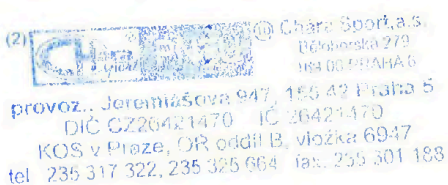 (2) Chára Sport, a.s.
Bělohorská 279
169 00 PRAHA 6
provoz.. Jeremiášova 947, 155 42 Praha 5
DIČ CZ26421470 IČ 26421470
KOS v Praze, OR oddíl B, vložka 6947
tel 235 317 322, 235 325 664 fax. 235 301 188